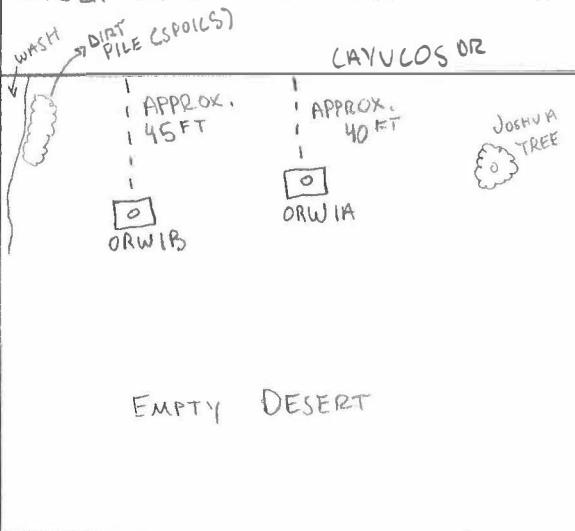 WASH
DIRT
PILE (SPOILS)
CAYUCOS DR
APPROX.
45 FT
APPROX.
40 FT
JOSHUA
TREE
ORW1B
ORW1A
EMPTY DESERT